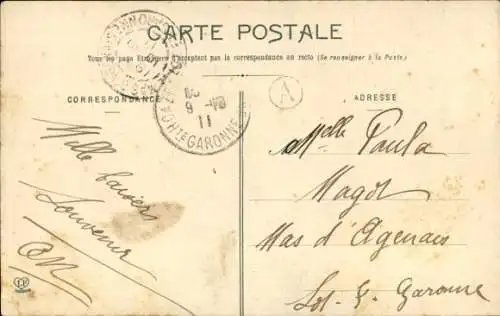 CARTE POSTALE
Tous les pays étrangers n'acceptent pas la correspondance au recto (Se renseigner à la Poste)
CORRESPONDANCE
ADRESSE
A
9 -10
11
HTE GARONNE
Mille baisers
Souvenir
Melle Paula
Magot
Mas d'Agenais
Lot-&-Garonne